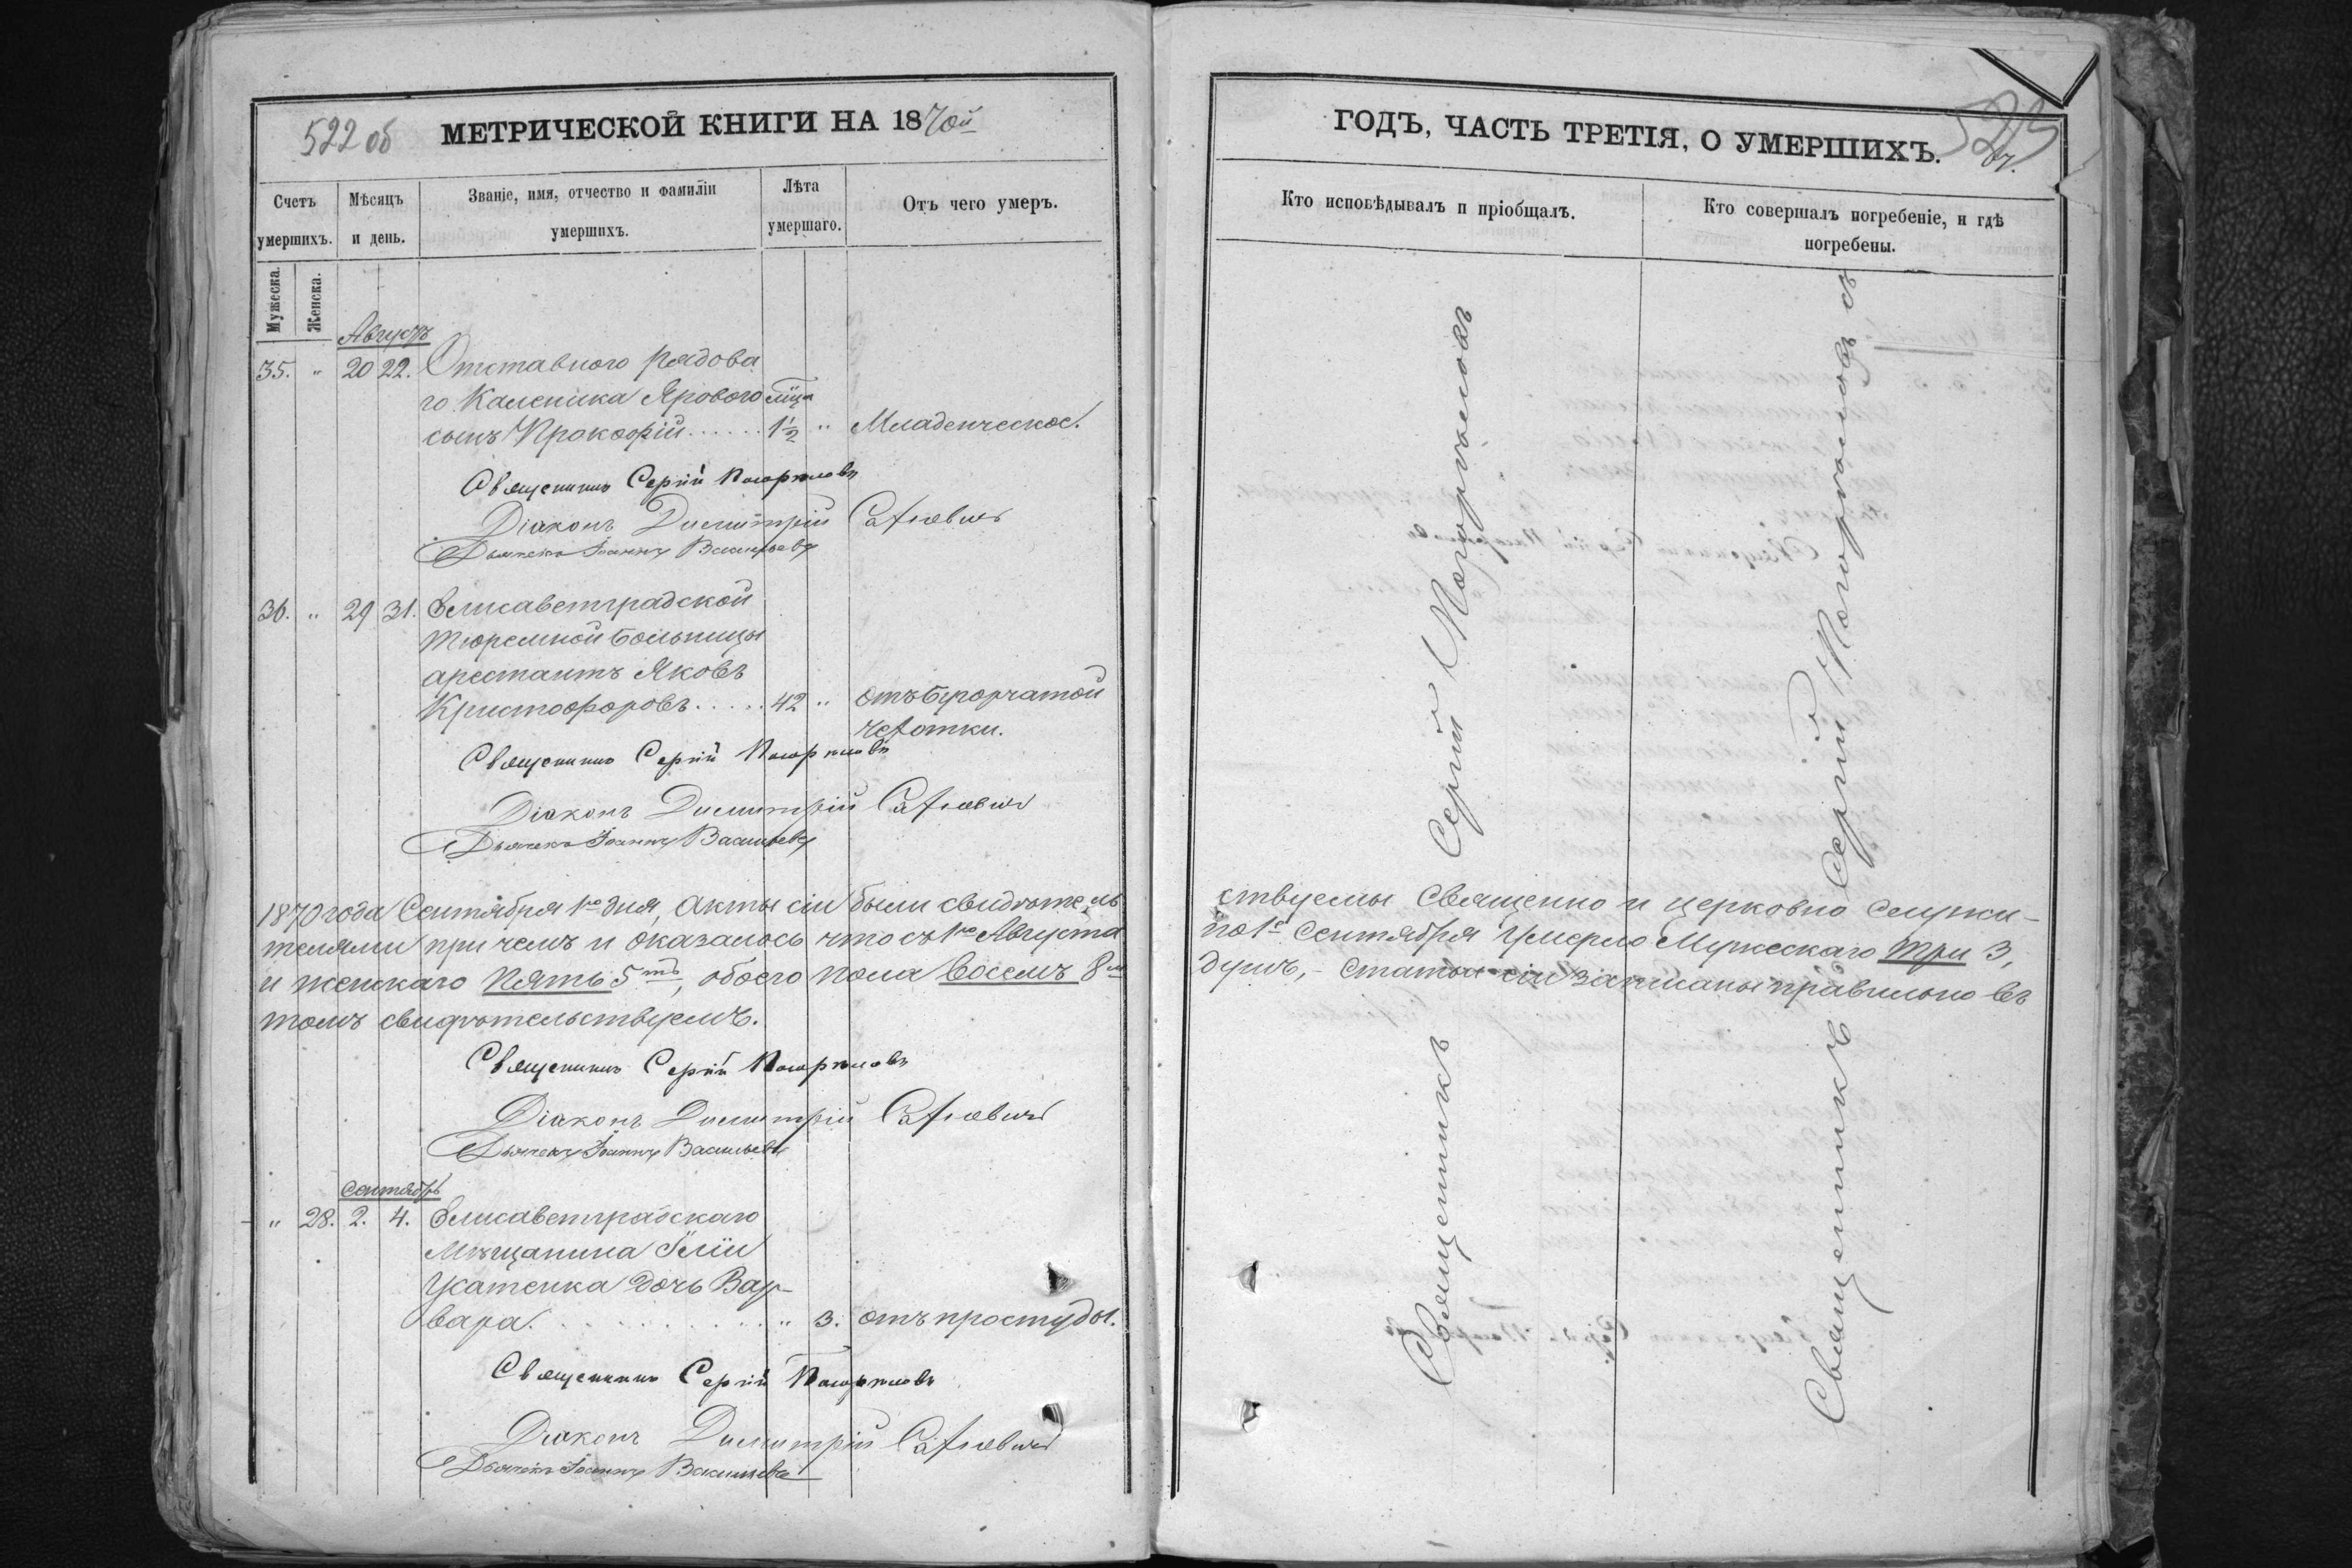 522 об
МЕТРИЧЕСКОЙ КНИГИ НА 1870й
Счетъ умершихъ.
Мѣсяцъ и день.
Званіе, имя, отчество и фамиліи умершихъ.
Лѣта умершаго.
Отъ чего умеръ.
Мужеска.
Женска.
Августъ
35. " 20 22. Отставного рядова
го Каленика Ярового
сынъ Прокофій 1½ " Младенческое.
Священникъ Сергій
Діаконъ Димитрій
Дьячекъ Іоаннъ Васильевъ
36. " 29 31. Елисаветградской
тюремной больницы
арестантъ Яковъ
Кристофоровъ 42 " отъ бугорчатой
чахотки.
Священникъ Сергій
Діаконъ Димитрій
Дьячекъ Іоаннъ Васильевъ
1870 года Сентября 1го дня, акты сіи были свидѣтель
телями при чемъ и оказалось что съ 1го Августа
и женскаго пять 5ть, обоего пола восемь 8м
томъ свидѣтельствуемъ.
Священникъ Сергій
Діаконъ Димитрій
Дьячекъ Іоаннъ Васильевъ
Сентябрь
" 28. 2. 4. Елисаветградскаго
мѣщанина Іліи
Усатенка дочь Вар-
вара. " 3. отъ простуды.
Священникъ Сергій
Діаконъ Димитрій
Дьячекъ Іоаннъ Васильевъ
ГОДЪ, ЧАСТЬ ТРЕТІЯ, О УМЕРШИХЪ.
523
Кто исповѣдывалъ и пріобщалъ.
Кто совершалъ погребеніе, и гдѣ
погребены.
ствуемы Священно и церковно служи-
по 1е Сентября умерло Мужескаго три 3,
душъ,- статьи сіи записаны правильно въ
Священникъ Сергій
Священникъ Сергій